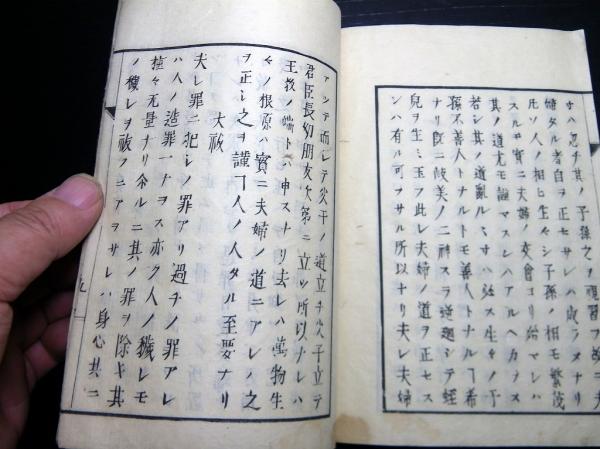 サハ忽チ其ノ子孫之ヲ視習フ故ニ夫
婦タル者自ヲ正セサレハ成ラヌナリ
凡ソ人ノ相ヒ生々シ子孫ノ相モ繁茂
スルヿ實ニ夫婦ノ交會ヨリ始マレハ
其ノ道尤モ謹マスンハアルヘカラス
若シ其ノ道亂ルヽサハ必ス生々ノ子
孫不善人トナルトモ善人トナルヿ希
ナリ既ニ岐美ノ二神スラ逆𢌞シテ蛭
兒ヲ生ミ玉フ此レ夫婦ノ道ヲ正セス
ンハ有ル可ラサル所以ナリ夫レ夫婦
アツテ而レテ父子ノ道立チ父子立テ
君臣長幼朋友次第ニ立ツ所以ナレハ
王教ノ端トハ申スナリ去レハ萬物生
々ノ根原ハ實ニ夫婦ノ道ニアレハ之
ヲ正シ之ヲ謹ムヿ人ノ人タル至要ナリ
大祓
夫レ罪ニ犯シノ罪アリ過チノ罪アレ
ハ人ノ造罪一ナラス亦ク人ノ穢レモ
種々無量ナリ尒ルニ其ノ罪ヲ除キ其
ノ穢レヲ祓フニアラサレハ身心共ニ